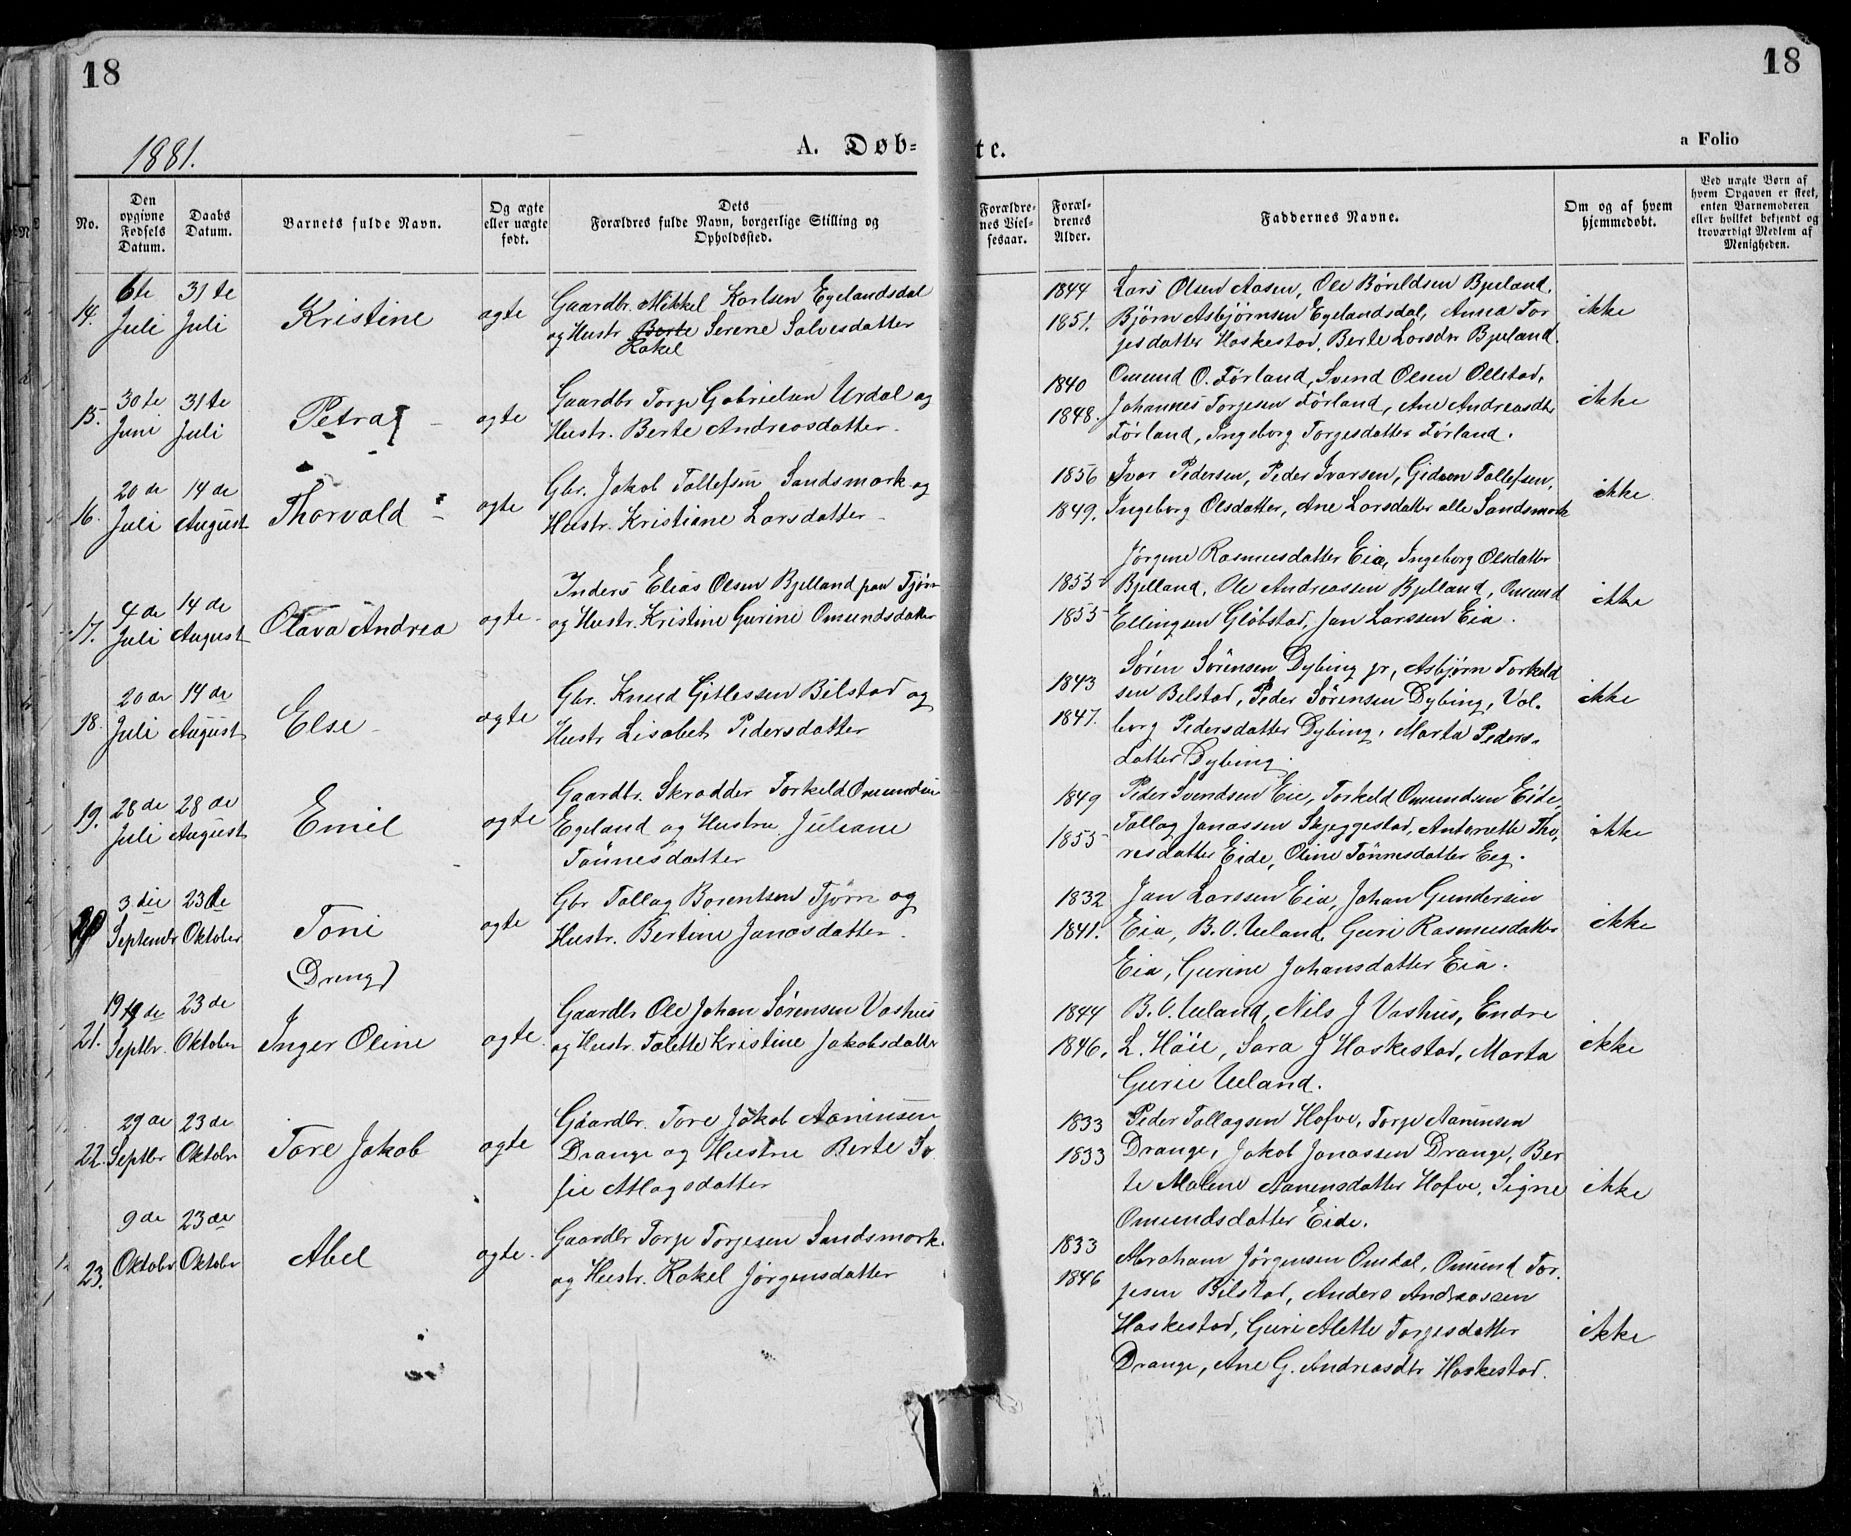 18
18
1881.
A. Døb-
te.
a Folio
No.
Den opgivne Fødsels Datum.
Daabs Datum.
Barnets fulde Navn.
Og ægte eller uægte født.
Dets Forældres fulde Navn, borgerlige Stilling og Opholdssted.
Forældrenes Vielsesaar.
Forældrenes Alder.
Faddernes Navne.
Om og af hvem hjemmedøbt.
Ved uægte Børn af hvem Opgaven er skeet, enten Barnemoderen eller hvilket bekjendt og troværdigt Medlem af Menigheden.
14. 6te Juli 31te Juli Kristine ægte
Gaardbr Mikkel Karlsen Egelandsdal
og Hustr. Berte Serene Salvesdatter
Rakel
1844 Lars Olsen Aasen, Ole Børildsen Bjelland,
1851. Bjørn Asbjørnsen Egelandsdal, Anna Tor
jesdatter Haskestad, Berte Larsdr Bjelland. ikke
15. 30te Juni 31te Juli Petra ægte
Gaardbr Torje Gabrielsen Urdal og
Hustr. Berte Andreasdatter.
1840 Omund O. Førland, Svend Olsen Ollestad,
1848. Johannes Torjesen Førland, Ane Andreasdtr
Førland, Ingeborg Torgesdatter Førland. ikke
16. 20de Juli 14de August Thorvald ægte
Gbr. Jakob Tallefsen Sandsmark og
Hustr. Kristiane Larsdatter
1856 Ivar Pedersen, Peder Ivarsen, Gideon Tallefsen,
1849. Ingeborg Olsdatter, Ane Larsdatter alle Sandsmark ikke
17. 4de Juli 14de August Olava Andrea ægte
Inders Elias Olsen Bjelland paa Tjørn
og Hustr. Kristine Gurine Omundsdatter
Jørgine Rasmusdatter Eia, Ingeborg Olsdatter
1855 Bjelland, Ole Andreassen Bjelland, Omund
1855 Ellingsen Gløbstad, Jan Larssen Eia. ikke
18. 20de Juli 14de August Else ægte
Gbr. Knud Gitlessen Bilstad og
Hustr Lisabet Pedersdatter
Søren Sørensen Dybing jr, Asbjørn Torkeld
1843 sen Bilstad, Peder Sørensen Dybing, Vol-
1847. borg Pedersdatter Dybing, Marta Peders-
datter Dybing. ikke
19. 28de Juli 28de August Emil ægte
Gaardbr. Skrædder Torkeld Omundsen
Egeland og Hustru Juliane
Tønnesdatter
1849 Peder Svendsen Eie, Torkeld Omundsen Eide,
1855 Tallag Janassen Skjeggestad, Antonette Tho-
resdatter Eide, Oline Tønnesdatter Eeg. ikke
20 3die Septembr 23de Oktober Toni ægte
(Dreng)
Gbr Tallag Borentsen Tjørn og
Hustr. Bertine Janasdatter.
1832 Jan Larssen Eia, Johan Gundersen
1841. Eia, B. O. Ueland, Guri Rasmusdatter
Eia, Gurine Johansdatter Eia. ikke
21. 19de Septbr. 23de Oktober Inger Oline ægte
Gaardbr Ole Johan Sørensen Vashus
og Hustr. Talette Kristine Jakobsdatter
1844 B. O. Ueland, Nils J Vashus, Endre
1846. L. Høie, Sara J Haskestad, Marta
Gurie Ueland. ikke
22. 29de Septbr 23de Oktobr Tore Jakob ægte
Gaardbr. Tore Jakob Aanensen
Drange og Hustru Berte So
fie Atlagsdatter
1833 Peder Tallagsen Hofve, Torje Aanensen
1833 Drange, Jakob Janassen Drange, Ber
te Malene Aanensdatter Hofve, Signe
Omundsdatter Eide. ikke
23. 9de Oktobr 23de Oktobr Abel ægte
Gaardbr Torje Torjesen Sandsmark
og Hustr. Rakel Jørgensdatter
1833 Abraham Jørgensen Omdal, Omund Tor-
1846 jesen Bilstad, Anders Andreassen
Haskestad, Guri Alette Torjesdatter
Drange, Ane G. Andreasdtr Haskestad. ikke